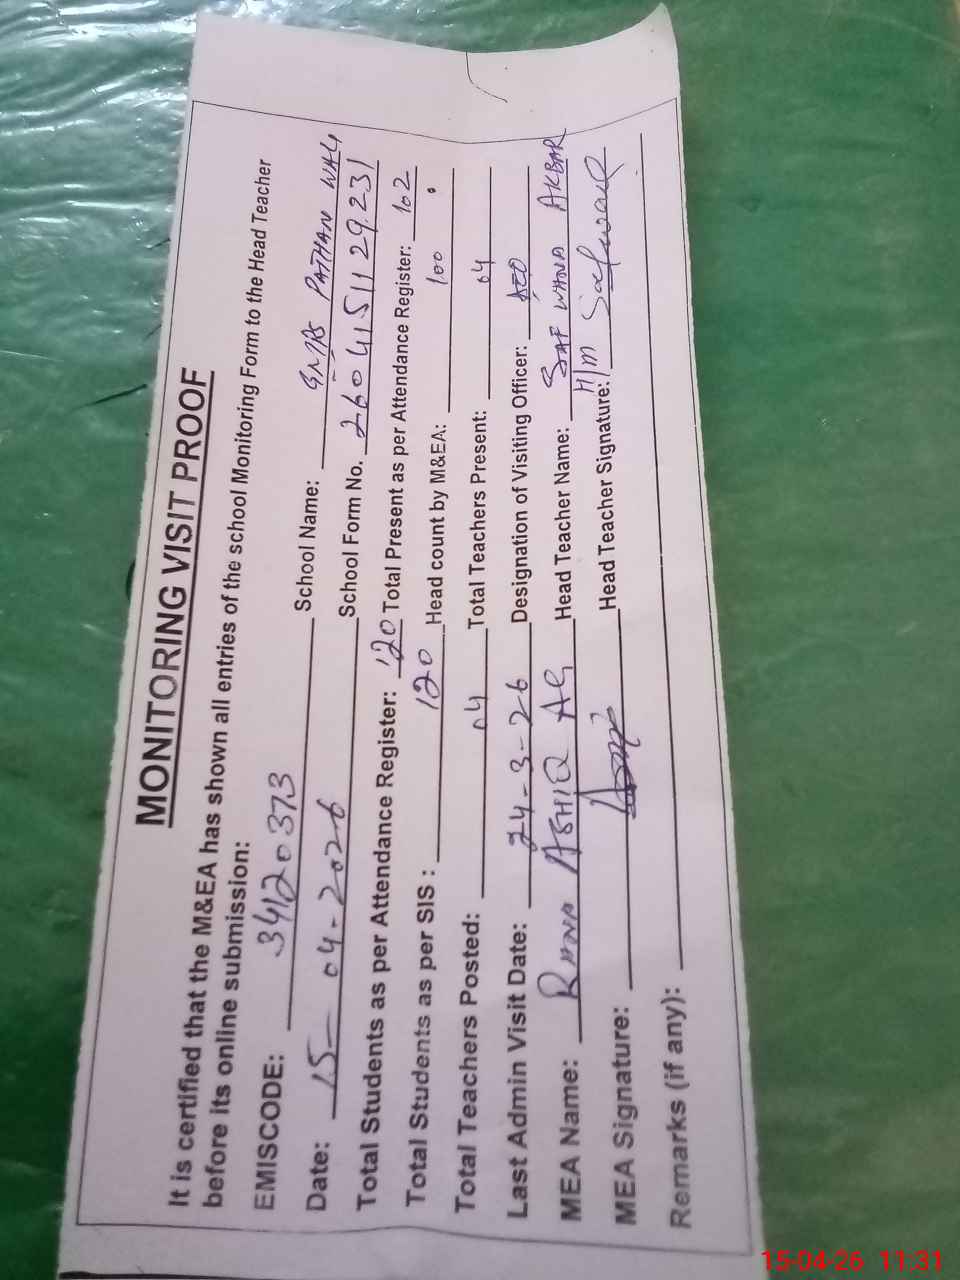 MONITORING VISIT PROOF
It is certified that the M&EA has shown all entries of the school Monitoring Form to the Head Teacher
before its online submission:
EMISCODE: 34120373 School Name: GMPS PATHAN WALI
Date: 15-04-2026 School Form No. 2604151129231
Total Students as per Attendance Register: 120 Total Present as per Attendance Register: 102
Total Students as per SIS : 120 Head count by M&EA: 100
Total Teachers Posted: 04 Total Teachers Present: 04
Last Admin Visit Date: 24-3-26 Designation of Visiting Officer: AEO
MEA Name: RANA ASHIQ Ali Head Teacher Name: SAFWANA AKBAR
MEA Signature: Head Teacher Signature: H/m Safwana
Remarks (if any):
15-04-26 11:31